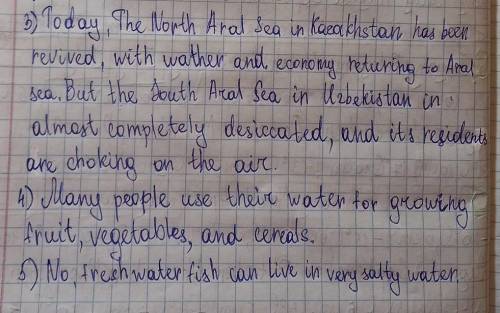 3) Today, The North Aral Sea in Kazakhstan has been
revived, with wather and economy returing to Aral
sea. But the South Aral Sea in Uzbekistan in
almost completely desiccated, and its residents
are choking on the air.
4) Many people use their water for growing
fruit, vegetables, and cereals.
5) No, freshwater fish can live in very salty water.